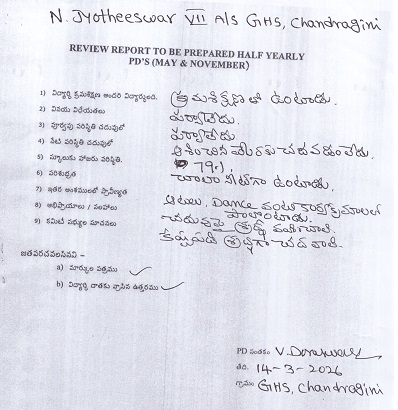 N. Jyotheeswar VII A/S GHS, Chandragini
REVIEW REPORT TO BE PREPARED HALF YEARLY
PD'S (MAY & NOVEMBER)
1) విద్యార్థి క్రమశిక్షణ అందరి విద్యార్థులది. క్రమశిక్షణతో ఉంటాడు.
2) వినయ విధేయతలు పర్వాలేదు
3) పూర్వపు పరిస్థితి చదువులో పర్వాలేదు
4) నేటి పరిస్థితి చదువులో ఆశించిన మేరకు చదవడం లేదు.
5) స్కూలుకు హాజరు పరిస్థితి. 79%
6) పరిశుభ్రత చాలా నీట్‌గా ఉంటాడు.
7) ఇతర అంశములలో ప్రావీణ్యత ఆటలు, Dance వంటి కార్యక్రమాలలో పాల్గొంటాడు.
8) అభిప్రాయాలు / సలహాలు చదువుపై శ్రద్ధ వహించాలి.
9) కమిటీ సభ్యుల సూచనలు శ్రద్ధగా చదవాలి
జతపరచవలసినవి –
a) మార్కుల పత్రము ✓
b) విద్యార్థి దాతకు వ్రాసిన ఉత్తరము ✓
PD సంతకం
తేది. 14-3-2026
గ్రామం GHS, Chandragini